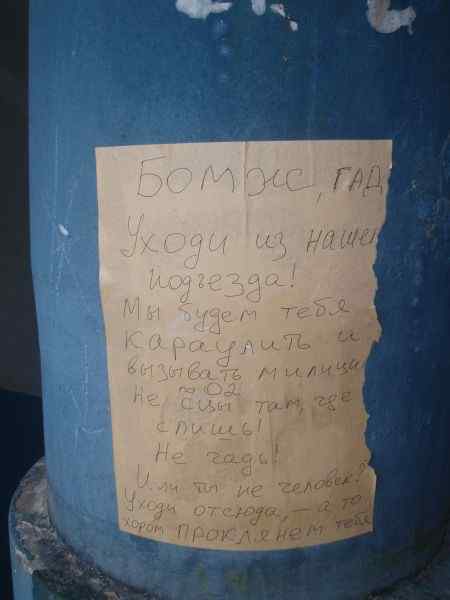 Бомж, ГАД
Уходи из нашег
подъезда!
Мы будем тебя
караулить и
вызывать милици
~02
Не сцы там, где
спишь!
Не гадь!
Или ты не человек?
Уходи отсюда, – а то
хором ПРОКЛЯНЕМ тебя